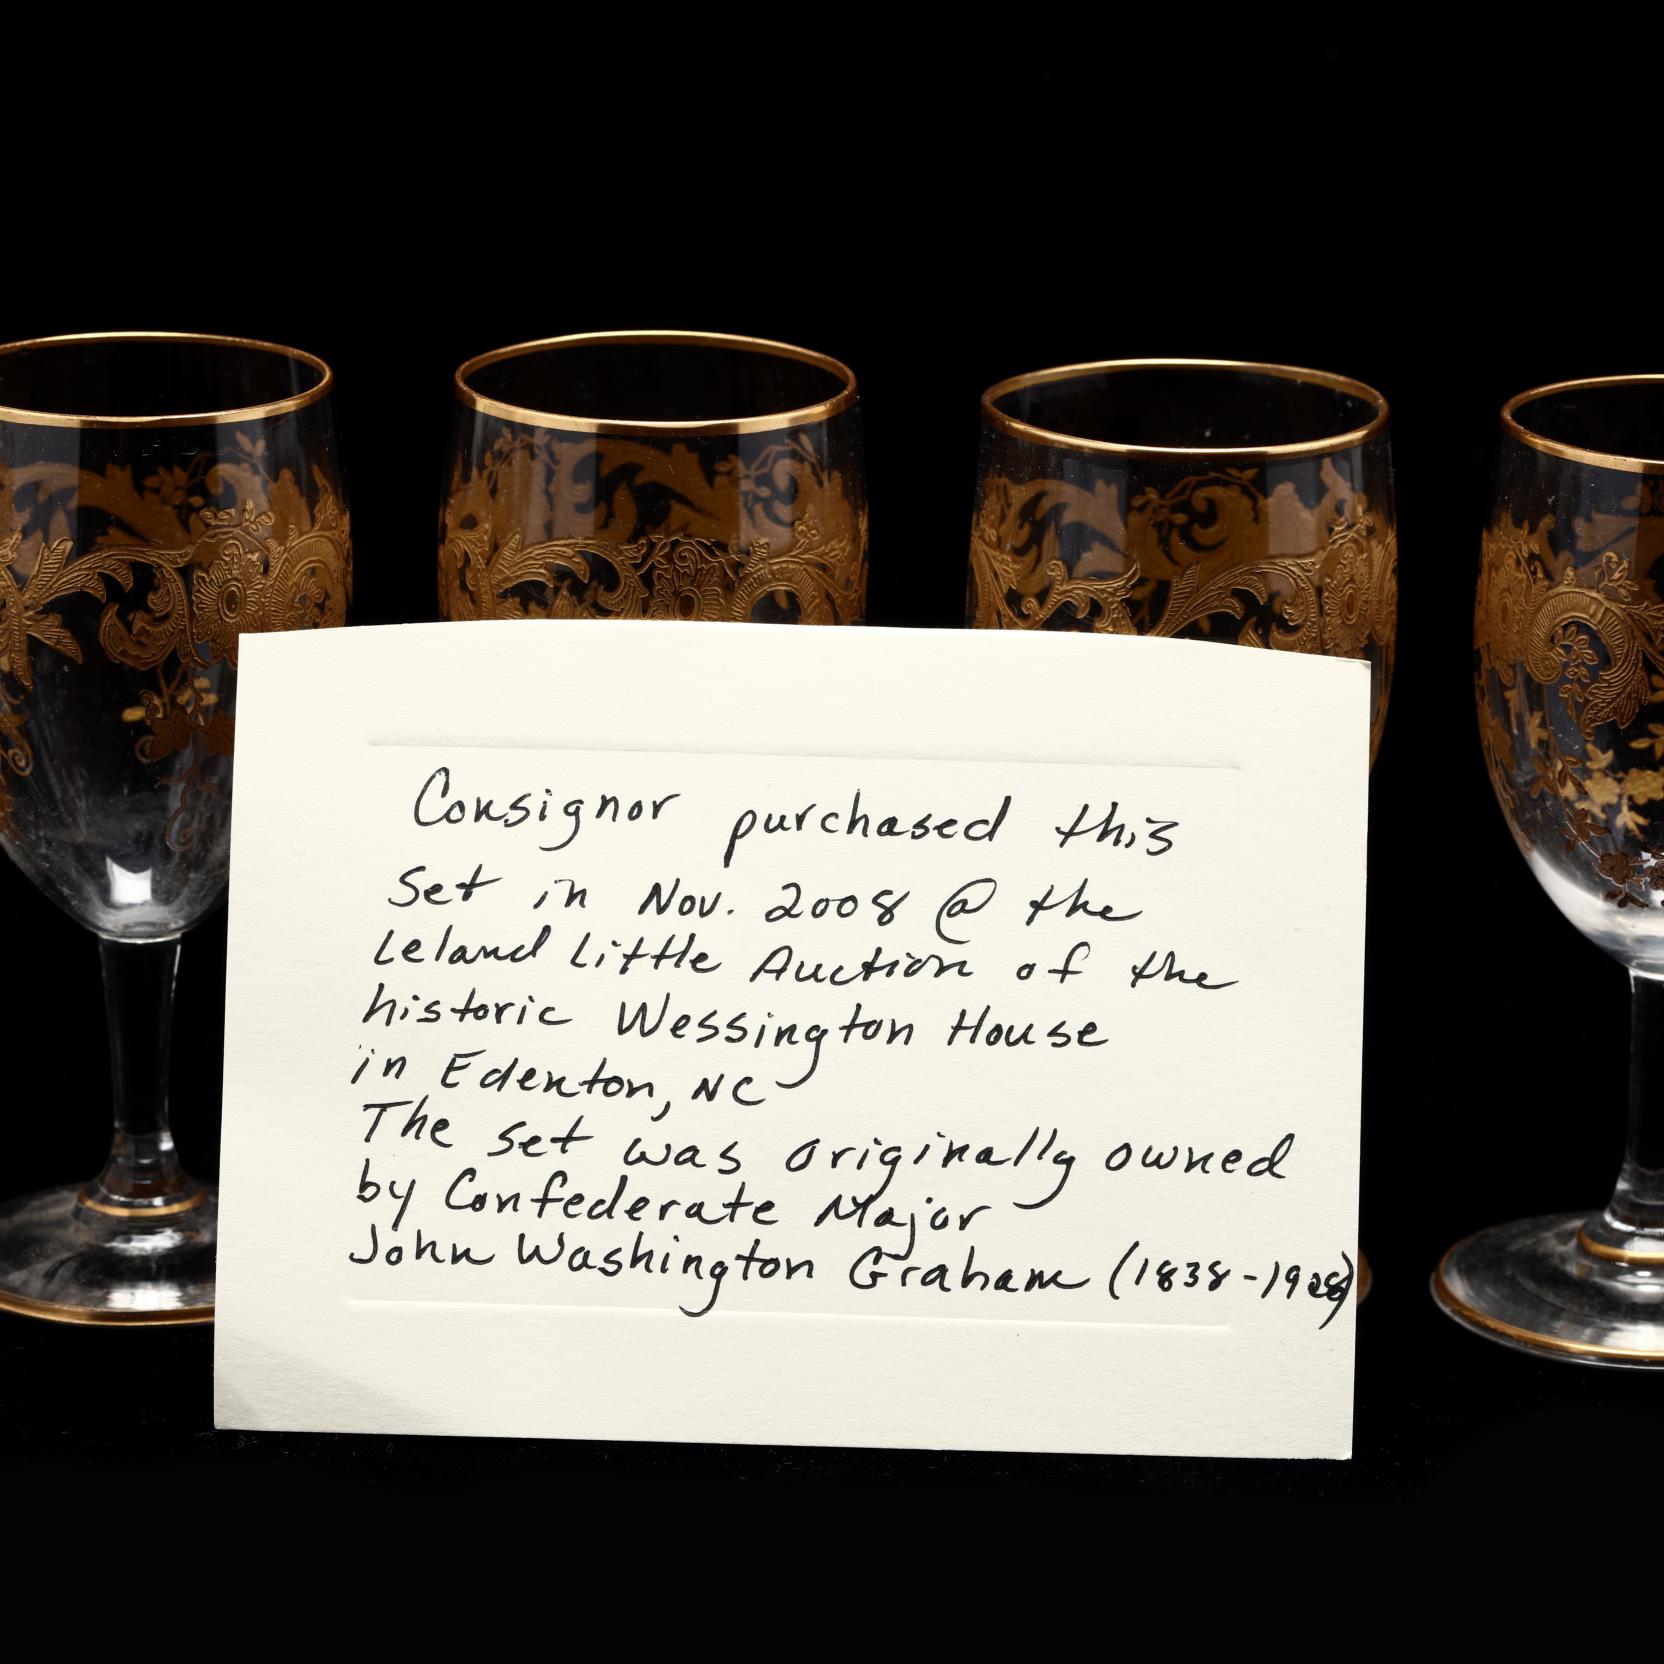 Consignor purchased this
set in Nov. 2008 @ the
Leland Little Auction of the
historic Wessington House
in Edenton, NC
The set was originally owned
by Confederate Major
John Washington Graham (1838-1928)